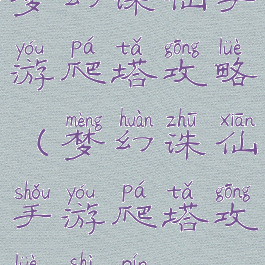 梦幻诛仙手
yóu pá tǎ gōng lüè
游爬塔攻略
mèng huàn zhū xiān
（梦幻诛仙
shǒu yóu pá tǎ gōng
手游爬塔攻
lüè shì pín